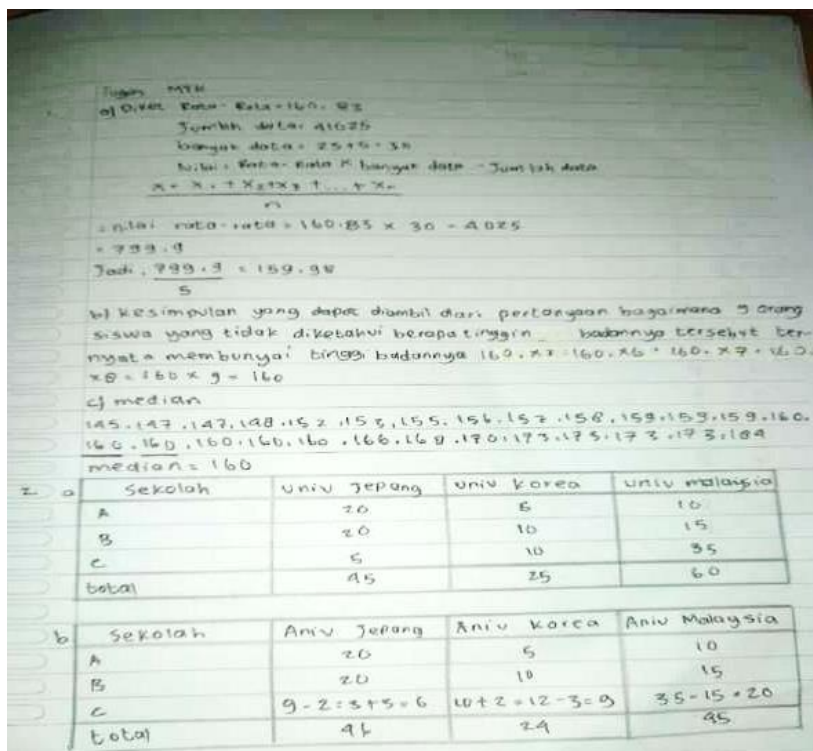 Tugas MTK
a) Diket Rata-Rata = 160.83
Jumlah data: 41025
banyak data = 25+5 = 30
Nilai = Rata-Rata x banyak data - Jumlah data
x = x. + x2+x3 + ... + xn
n
= nilai rata-rata = 160.83 x 30 - 4025
= 799.9
Jadi : 799.9 = 159.98
5
b) Kesimpulan yang dapat diambil dari pertanyaan bagaimana 5 orang
siswa yang tidak diketahui berapa tinggin badannya tersebut ter-
nyata membunyai tinggi badannya 160. x7 160. x6 = 160. x7 = 160.
x8 = 160 x 9 = 160
c) median
145.147.147.148.152.153.155.156.157.158.159.159.159.160.
160.160.160.160.160.166.168.170.173.173.173.173.184
median = 160
2 a
Sekolah Univ Jepang Univ Korea Univ malaysia
A 20 5 10
B 20 10 15
C 5 10 35
total 45 25 60
b
Sekolah Aniv Jepang Aniv Korea Aniv Malaysia
A 20 5 10
B 20 10 15
C 9-2=3+5=6 10+2=12-3=9 35-15=20
total 46 24 45